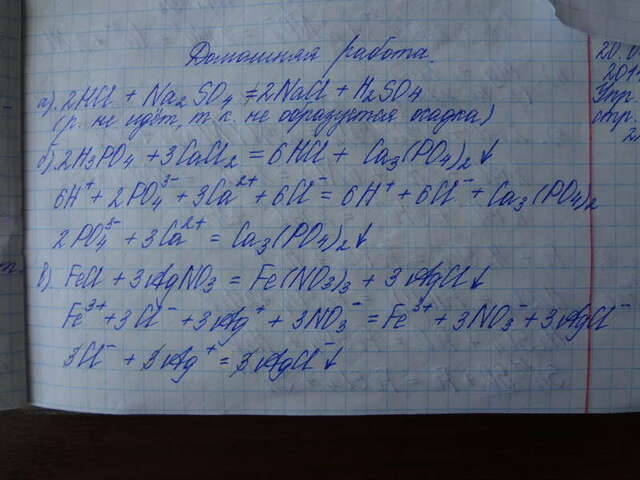 Домашняя работа.
а). 2HCl + Na₂SO₄ ≠ 2NaCl + H₂SO₄
(р. не идёт, т.к. не образуется осадка)
б). 2H₃PO₄ + 3CaCl₂ = 6HCl + Ca₃(PO₄)₂↓
6H⁺ + 2PO₄³⁻ + 3Ca²⁺ + 6Cl⁻ = 6H⁺ + 6Cl⁻ + Ca₃(PO₄)₂
2PO₄³⁻ + 3Ca²⁺ = Ca₃(PO₄)₂↓
в). FeCl + 3AgNO₃ = Fe(NO₃)₃ + 3AgCl↓
Fe³⁺ + 3Cl⁻ + 3Ag⁺ + 3NO₃⁻ = Fe³⁺ + 3NO₃⁻ + 3AgCl⁻
3Cl⁻ + 3Ag⁺ = 3AgCl⁻↓
20.
201
Упр
стр.